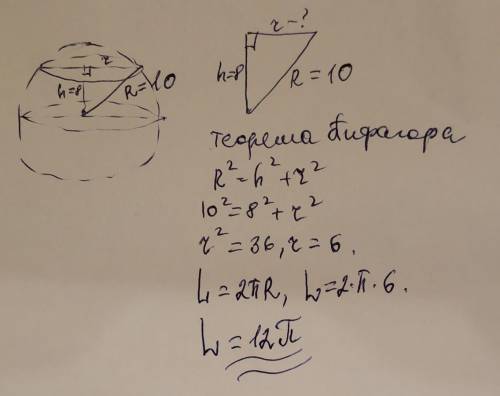 r
h=8
R=10
r-?
h=8
R=10
теорема Пифагора
R²=h²+r²
10²=8²+r²
r²=36, r=6.
L=2πR, L=2·π·6.
L=12π